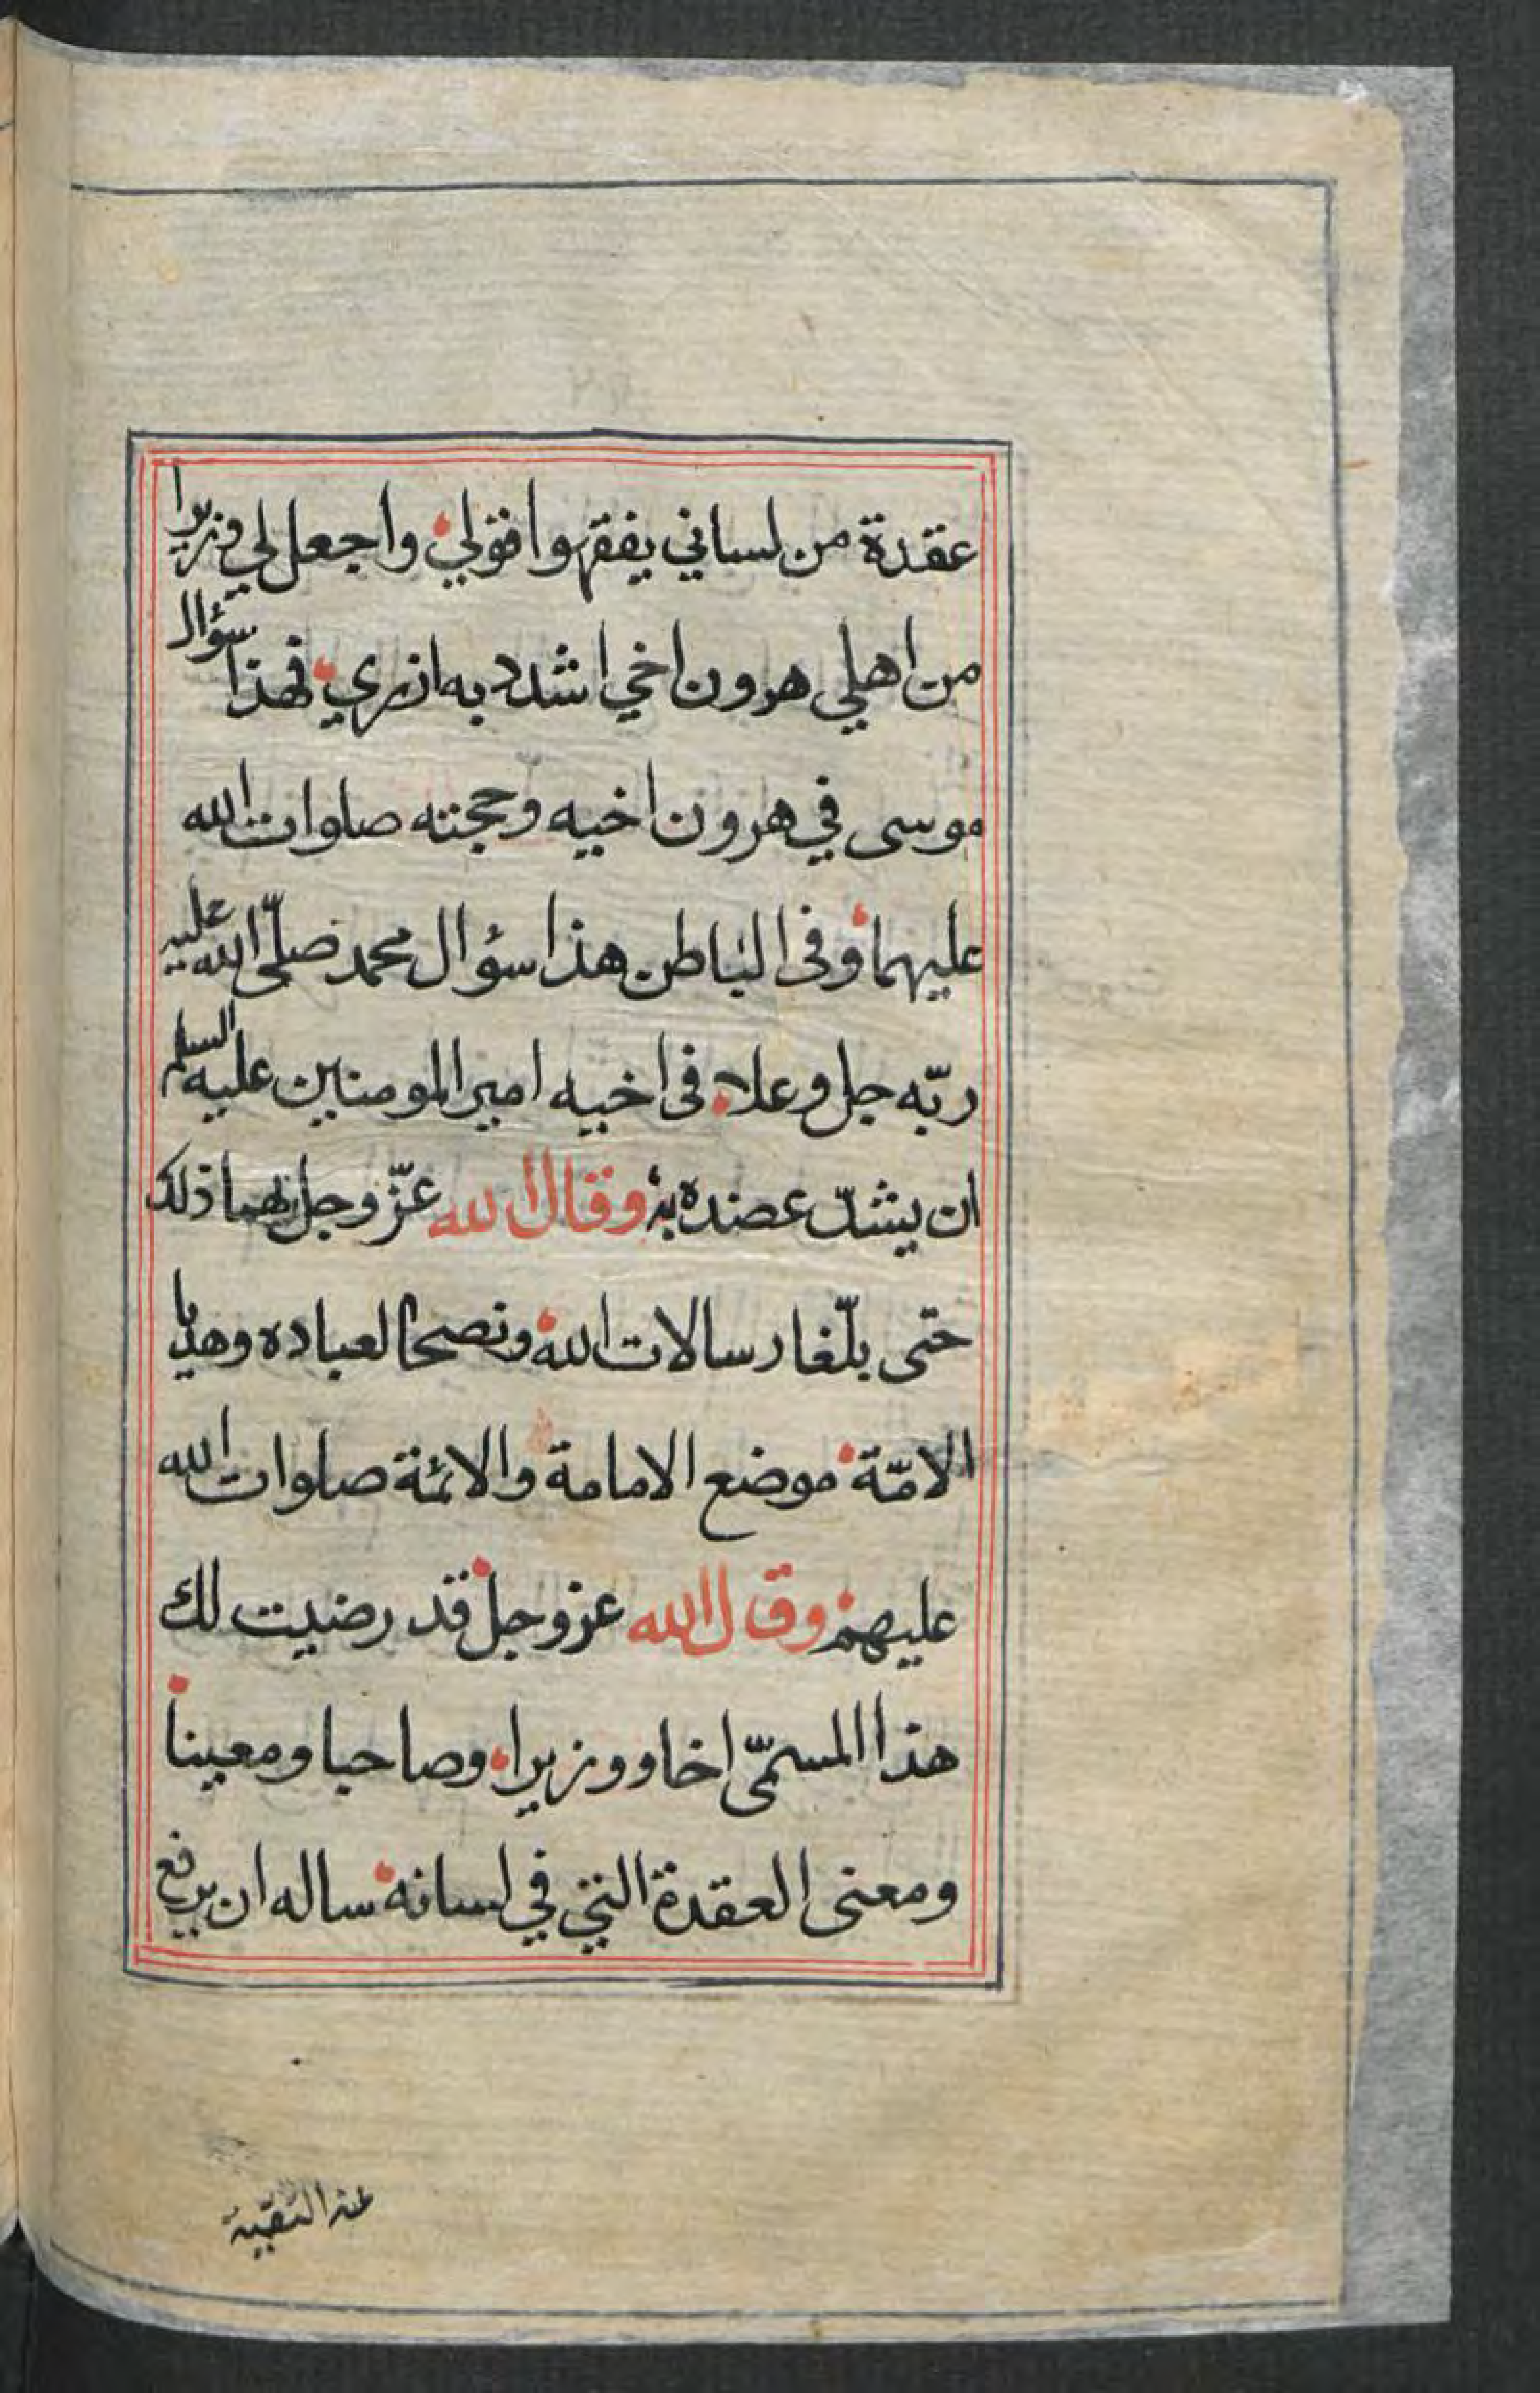 عقدة من لساني يفقهوا قولي واجعل لي وزيرا
من اهلي هرون اخي اشدد به ازري فهذا سؤال
موسى في هرون اخيه وحجته صلوات الله
عليهما وفى الباطن هذا سؤال محمد صلّى الله عليه
ربّه جل وعلا فى اخيه امير المومنين عليه السلم
ان يشدّ عضده به وقال الله عزّ وجل لهما ذلك
حتى بلّغا رسالات الله ونصحا لعباده وهديا
الامّة موضع الامامة والائمة صلوات الله
عليهم وقال الله عز وجل قد رضيت لك
هذا المسمّى اخا ووزيرا وصاحبا ومعينا
ومعنى العقدة التي في لسانه ساله ان يرفع
عنه التقية